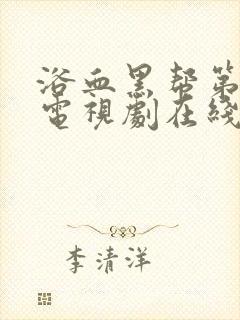 浴血黑帮第
電視劇在綫
李清洋